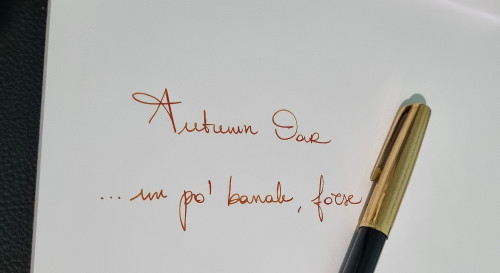 Autumn Oak
... un po' banale, forse